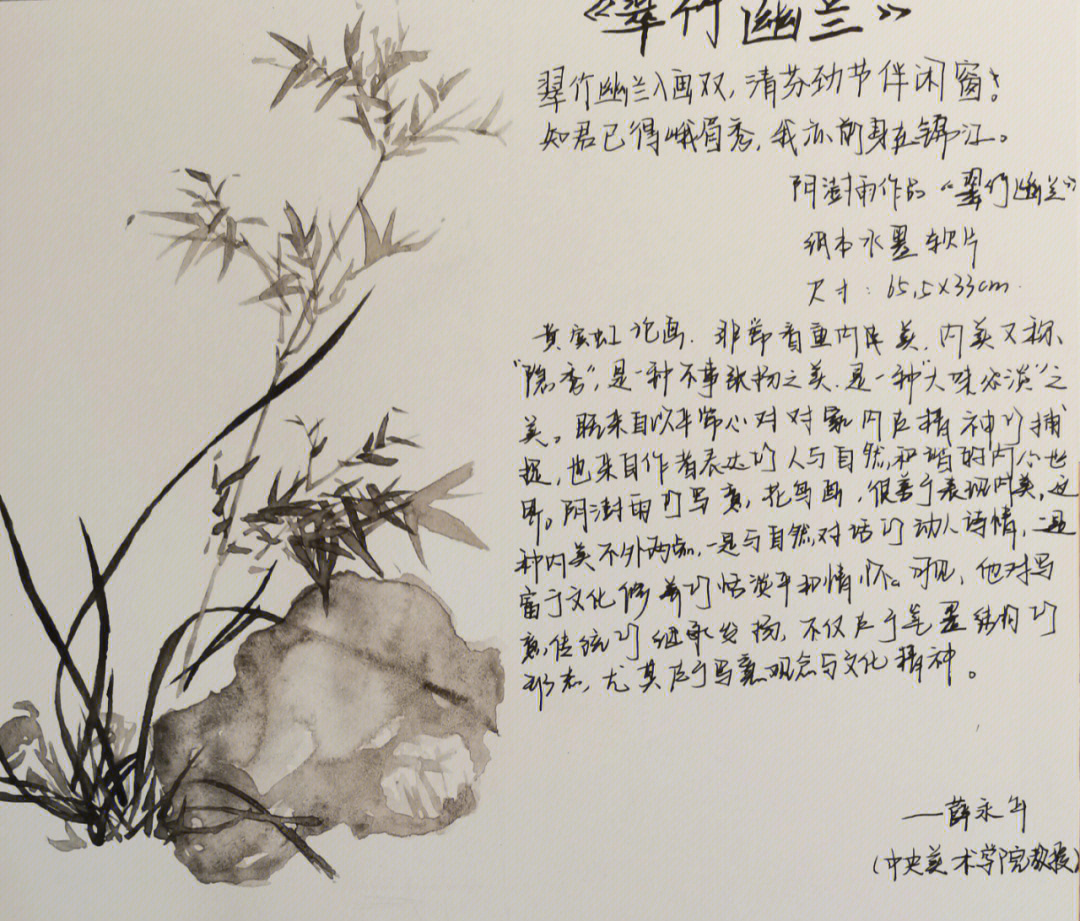 《翠竹幽兰》
翠竹幽兰入画双,清芬劲节伴闲窗!
知君已得峨眉秀,我亦前身在锦江。
阴澍雨作品“翠竹幽兰”
纸本水墨软片
尺寸:65.5×33cm
黄宾虹论画,非常看重内在美,内美又称
“隐秀”,是一种不事张扬之美,是一种“大味必淡”之
美。既来自以平常心对对象内在精神的捕
捉,也来自作者表达的人与自然和谐的内心世
界。阴澍雨的写意,花鸟画,很善于表现内美,这
种内美不外两点,一是与自然对话的动人诗情,一是
富于文化修养的恬淡平和情怀。可见,他对写
意传统的继承发扬,不仅在于笔墨结构的
形态,尤其在于写意观念与文化精神。
——薛永年
(中央美术学院教授)